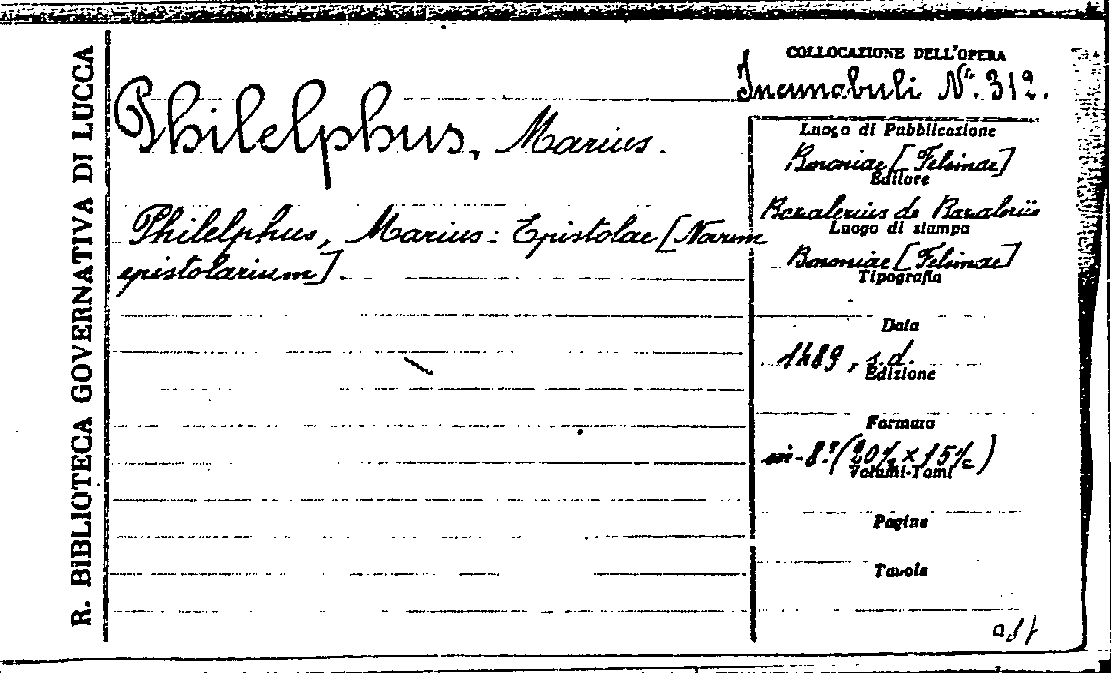 R. BIBLIOTECA GOVERNATIVA DI LUCCA
COLLOCAZIONE DELL'OPERA
Incunabuli N°. 312.
Philelphus, Marius.
Philelphus, Marius: Epistolae [Novum
epistolarium].
Luogo di Pubblicazione
Bononiae [Felsinae]
Editore
Bazalerius de Bazaleriis
Luogo di stampa
Bononiae [Felsinae]
Tipografia
Data
1489, s.d.
Edizione
Formato
in-8° (20½ × 15½)
Volumi-Tomi
Pagine
Tavole